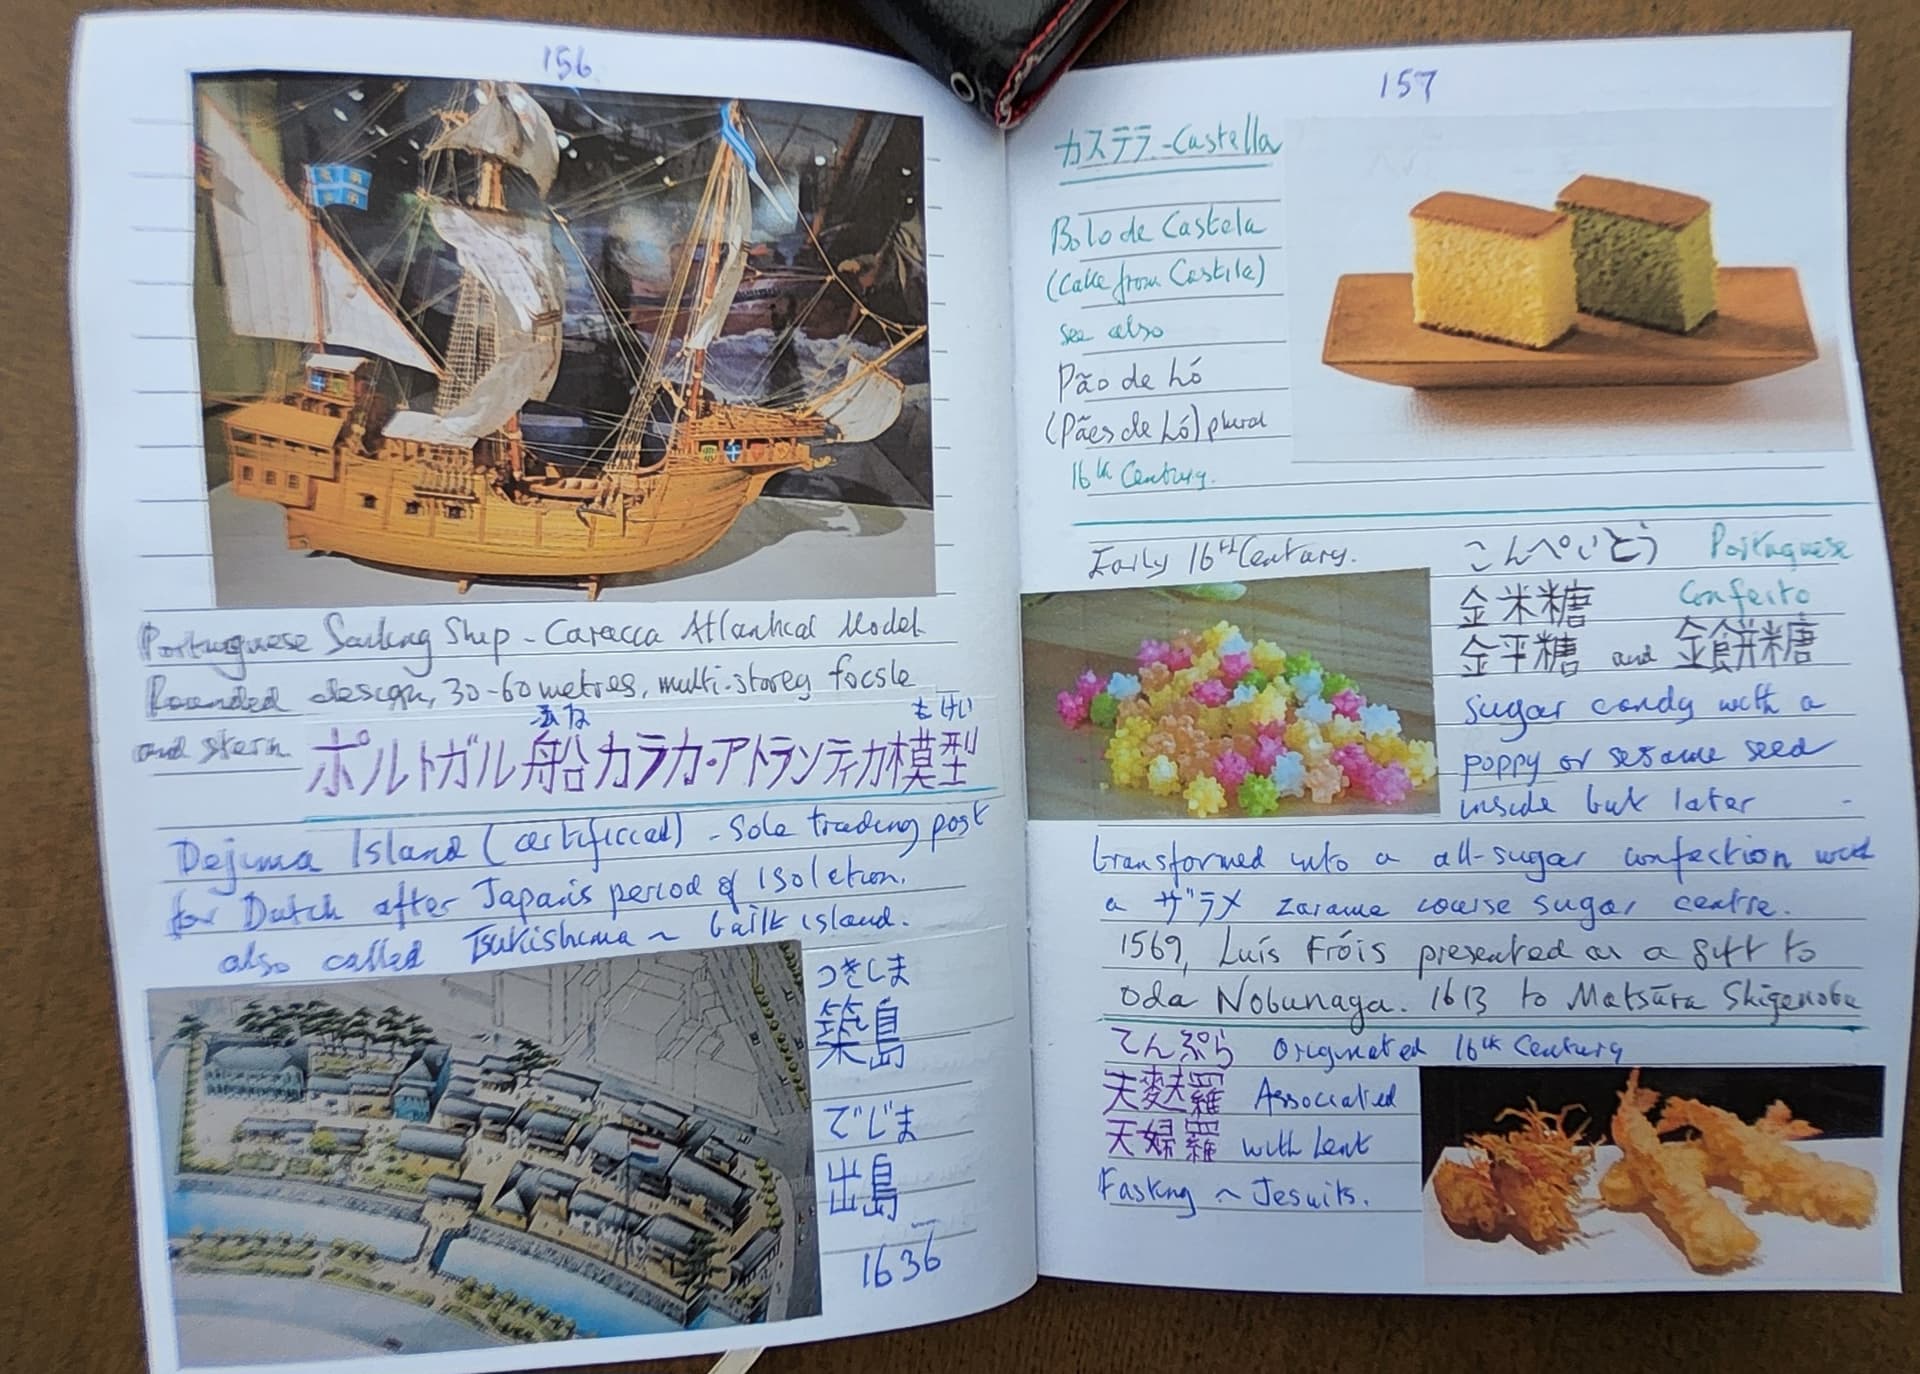 156
Portuguese Sailing Ship - Caracca Atlantica Model
Rounded design, 30-60 metres, multi-storey focsle
and stern
ふな もけい
ポルトガル船カラカ・アトランティカ模型
Dejima Island (artificial) - Sole trading post
for Dutch after Japan's period of isolation.
also called Tsukishima ~ built island.
つきしま
築島
でじま
出島
1636
157
カステラ - Castella
Bolo de Castela
(Cake from Castile)
see also
Pão de Ló
(Pães de Ló) plural
16th Century.
Early 16th Century.
こんぺいとう Portuguese
金米糖 Confeito
金平糖 and 金餅糖
sugar candy with a
poppy or sesame seed
inside but later
transformed into a all-sugar confection with
a ザラメ zarame course sugar centre.
1569, Luís Fróis presented as a gift to
Oda Nobunaga. 1613 to Matsūra Shigenobu
てんぷら Originated 16th Century
天麩羅 Associated
天婦羅 with Lent
Fasting ~ Jesuits.